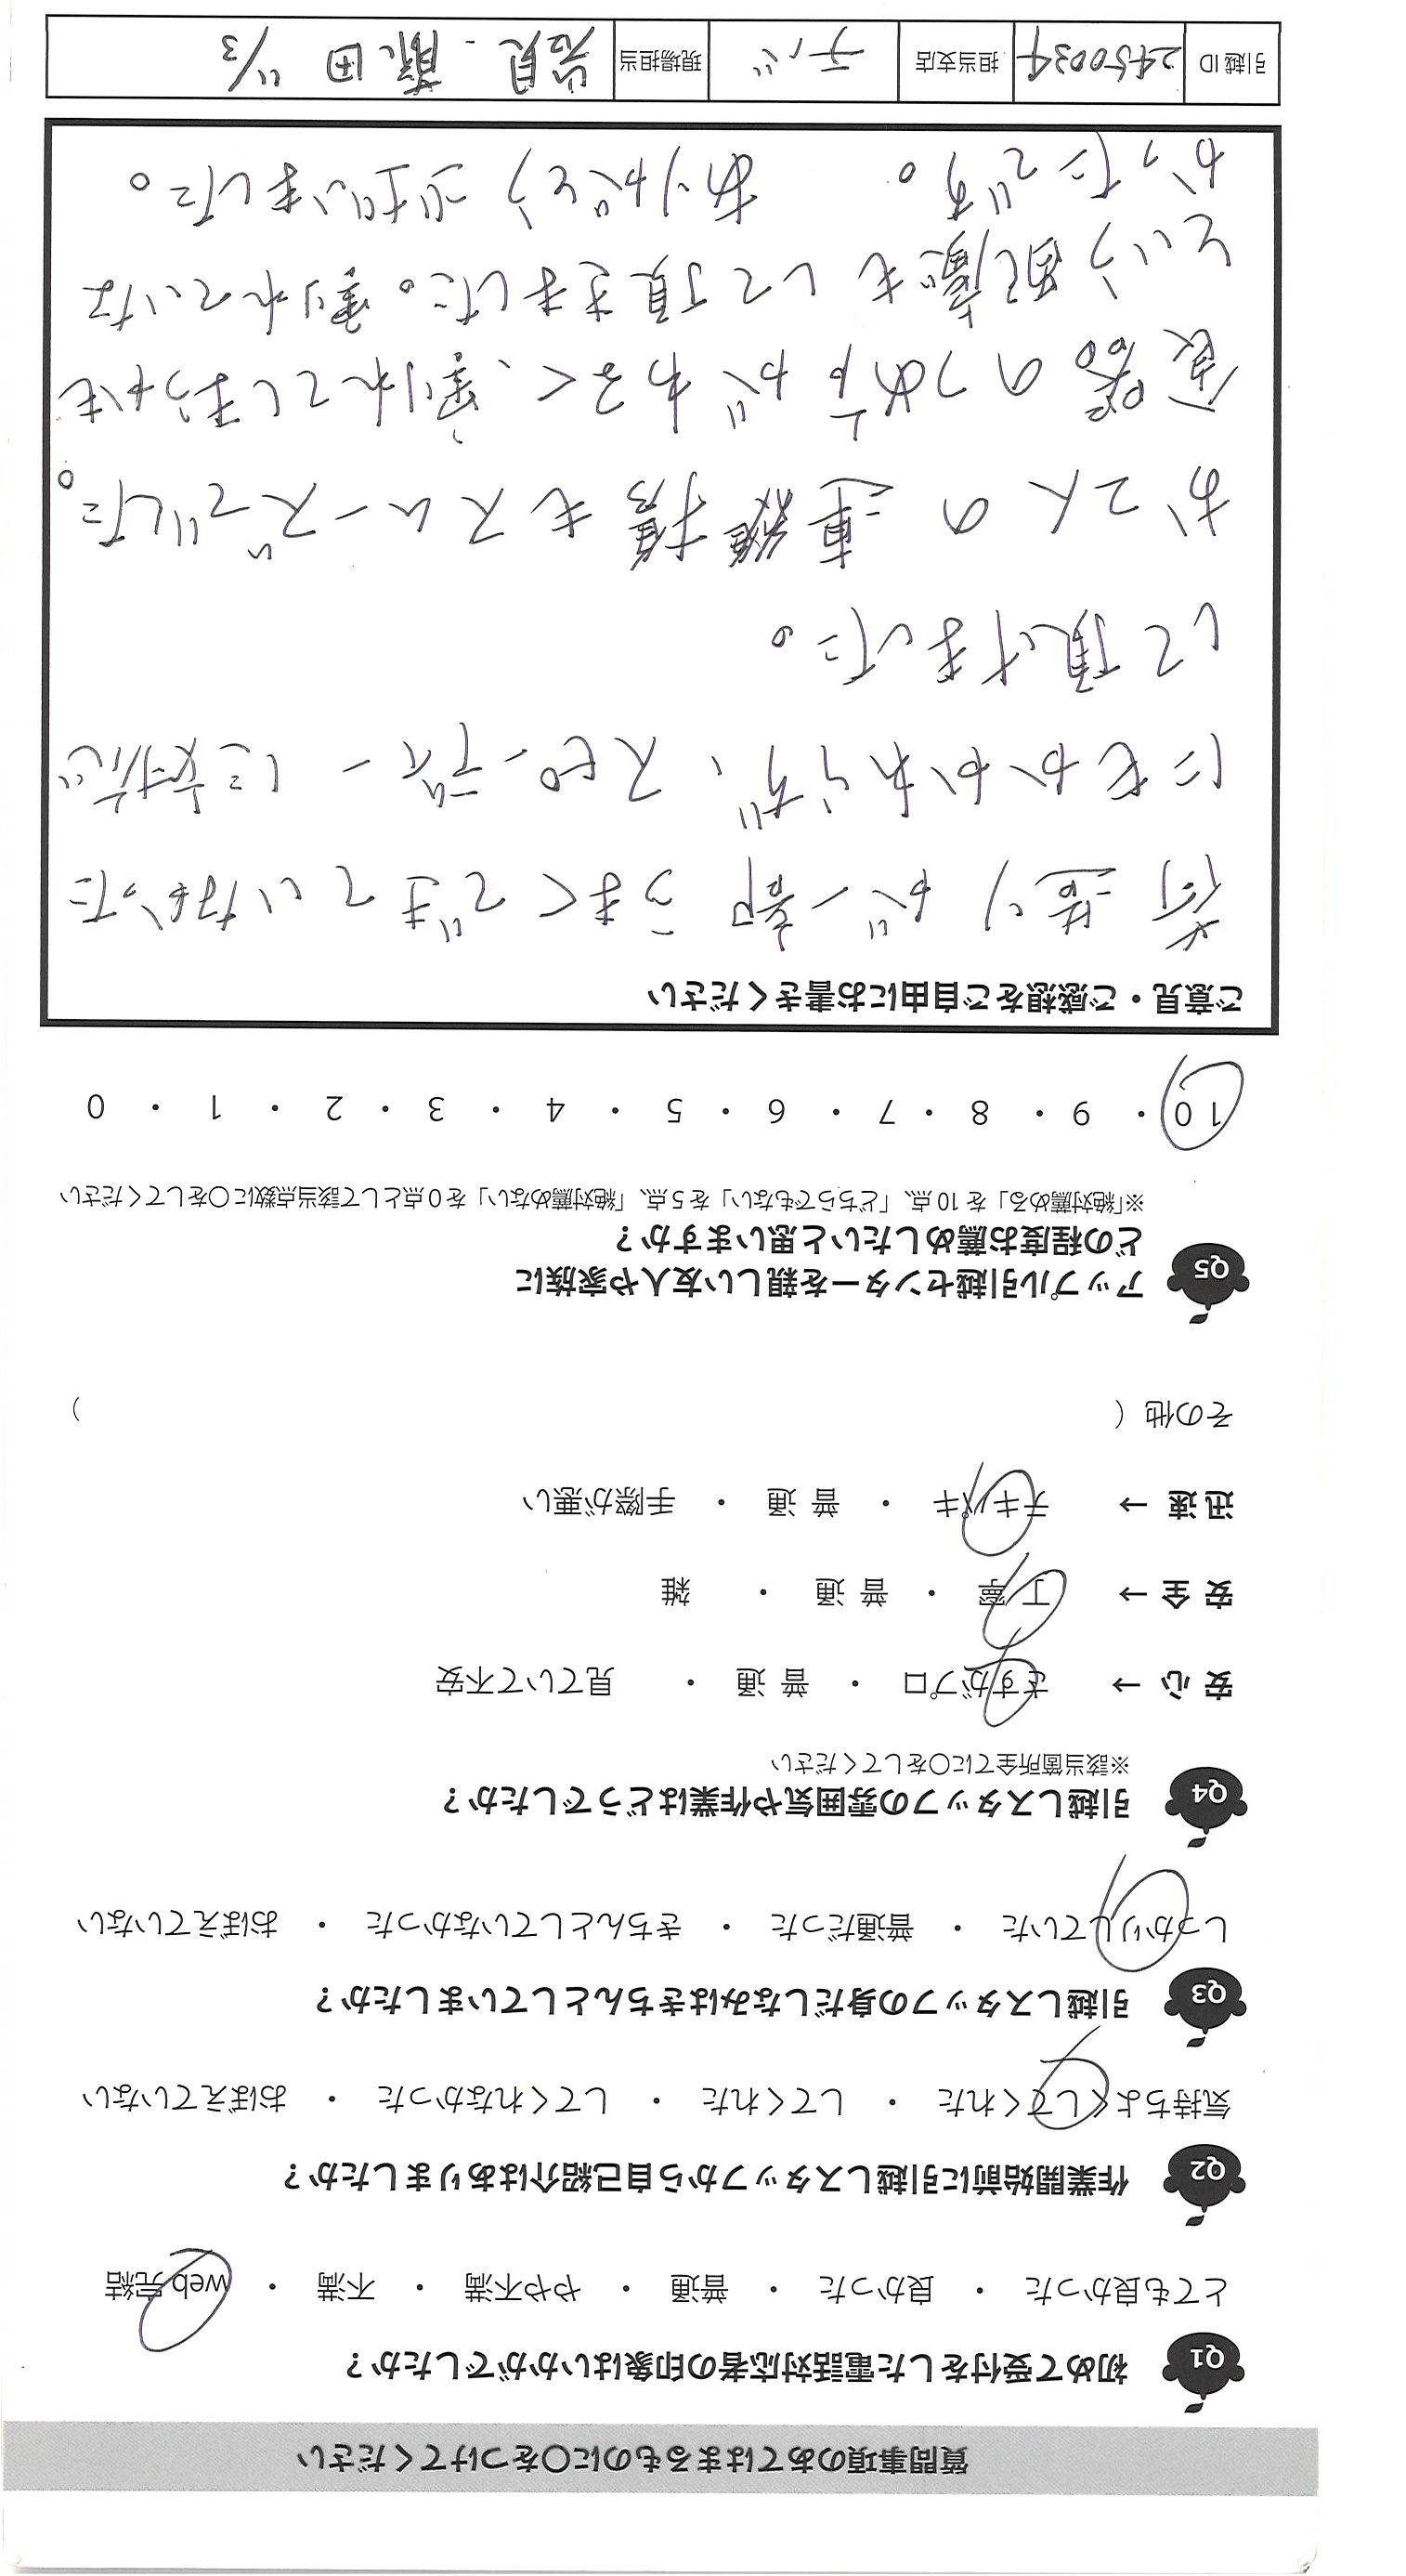 質問事項のあてはまるものに〇をつけてください
Q1 初めて受付をした電話対応者の印象はいかがでしたか？
とても良かった ・ 良かった ・ 普通 ・ やや不満 ・ 不満 ・ web 完結
Q2 作業開始前に引越しスタッフから自己紹介はありましたか？
気持ちよくしてくれた ・ してくれた ・ してくれなかった ・ おぼえていない
Q3 引越しスタッフの身だしなみはきちんとしていましたか？
しっかりしていた ・ 普通だった ・ きちんとしていなかった ・ おぼえていない
Q4 引越しスタッフの雰囲気や作業はどうでしたか？
※該当箇所全てに〇をしてください
安 心 → さすがプロ ・ 普 通 ・ 見ていて不安
安 全 → 丁 寧 ・ 普 通 ・ 雑
迅 速 → テキパキ ・ 普 通 ・ 手際が悪い
その他（ ）
Q5 アップル引越センターを親しい友人や家族に
どの程度お薦めしたいと思いますか？
※「絶対薦める」を 10 点、「どちらでもない」を 5 点、「絶対薦めない」を 0 点として該当点数に〇をしてください
10 ・ 9 ・ 8 ・ 7 ・ 6 ・ 5 ・ 4 ・ 3 ・ 2 ・ 1 ・ 0
ご意見・ご感想をご自由にお書きください
荷造りが一部うまくできていなかった
にもかかわらず、スピーディーに対応
して頂けました。
お二人の連携もスムーズでした。
食器のつめ方がわるく、割れてしまうかも
という配慮もして頂きました。割れていな
かったです。 ありがとうございました。
引越 ID 2450034 担当支店 チバ 現場担当 岩見・藤田 11/3